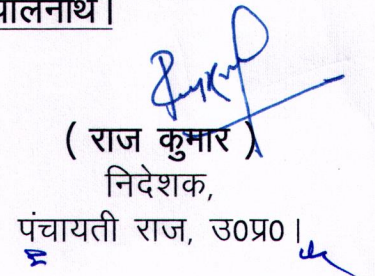 ( राज कुमार )
निदेशक,
पंचायती राज, उ0प्र0।